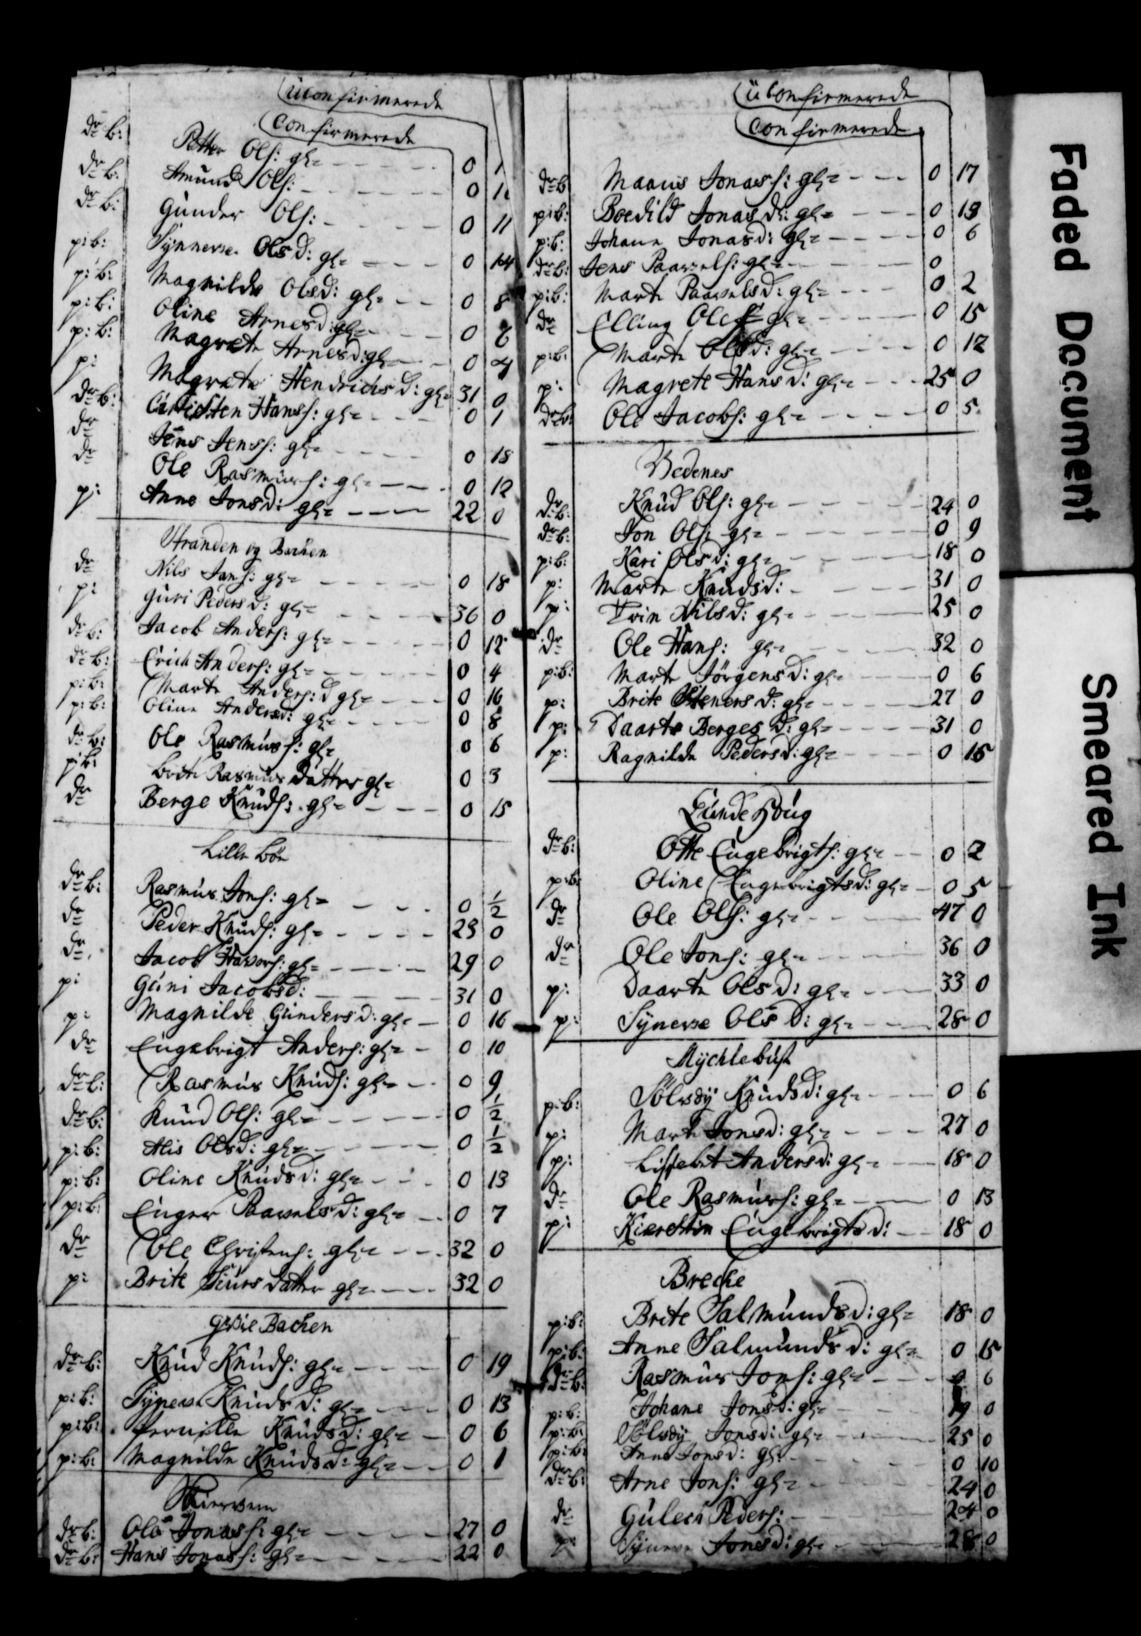 üconfirmerede
confirmerede
dr b: Petter Ols: gl= 0 1
dr b: Amund Ols: 0
dr b: Gunder Ols: 0 11
p: b: Synnerve Olsd: gl= 0 14
p: b: Magnilde Olsd: gl= 0 8
p: b: Oline Arnesd: gl= 0
p: b: Magrete Arnesd: gl= 0
p: Magrete Hendrichsd: gl= 31 0
dr b: Christen Hanss: gl= 0 1
dr Jens Jenss: gl= 0 18
dr Ole Rasmuss: gl= 0 12
p: Anne Jonsd: gl= 22 0
Stranden og Barken
dr Nils Jans: gl= 0 18
p: Guri Pedersd: gl= 36 0
dr b: Jacob Anders: gl= 0 12
dr b: Erich Anders: gl= 0 4
p: b: Marte Anders: d gl= 0 16
p: b: Oline Andersd: gl= 0 8
dr b: Ole Rasmuss: gl= 0 6
p: b: Brite Rasmus Datter gl= 0 3
dr Berge Knuds: gl= 0 15
Lille Bøe
dr b: Rasmus Jons: gl= 0 ½
dr Peder Knuds: gl= 23 0
dr Jacob Havors: gl= 29 0
p: Guni Jacobsd: 31 0
p: Magnilde Gundersd: gl= 0 16
dr Engebrigt Anders: gl= 0 10
dr b: Rasmus Knuds: gl= 0 9
dr b: Knud Ols: gl= 0 ½
p: b: Alis Olsd: gl= 0 ½
p: b: Oline Knudsd: gl= 0 13
p: b: Enger Paavelsd: gl= 0 7
dr Ole Christens: gl= 32 0
p: Brite Siurs datter gl= 32 0
Bachen
dr b: Knud Knuds: gl= 0 19
p: b: Synneve Knudsd: gl= 0 13
p: b: Pernille Knudsd: gl= 0 6
p: b: Magnilde Knudsd: gl= 0 1
dr b: Ole Jonass: gl= 27 0
dr b: Hans Jonass: gl= 22 0
üconfirmerede
confirmerede
dr b: Maans Jonass: gl= 0 17
p: b: Boedild Jonasd: gl= 0 19
p: b: Johane Jonasd: gl= 0 6
dr b: Jens Paavels: gl= 0
p: b: Marte Paavelsd: gl= 0 2
dr Elling Oles gl= 0 15
p: b: Marte Olsd: gl= 0 12
p: Magrete Hansd: gl= 25 0
dr b: Ole Jacobs: gl= 0 5
Vedenes
dr b: Knud Ols: gl= 24 0
dr b: Jon Ols: gl= 0 9
p: b: Kari Olsd: gl= 18 0
p: Marte Knudsd: 31 0
p: Trin Nilsd: gl= 25 0
dr Ole Hans: gl= 32 0
p: b: Marte Jørgensd: gl= 0 6
p: Brite Stenersd: gl= 27 0
p: Daarte Berges D: gl= 31 0
p: Ragnilde Pedersd: gl= 0 16
Lunde Houg
dr b: Otte Engebrigts: gl= 0 2
p: b: Oline Engebrigtsd: gl= 0 5
dr Ole Ols: gl= 47 0
dr Ole Jons: gl= 36 0
p: Daarte Olsd: gl= 33 0
p: Synerve Ols D: gl= 28 0
Mychlebust
p: b: Sølvdy Knudsd: gl= 0 6
p: Marte Jonsd: gl= 27 0
p: Lissebet Andersd: gl= 18 0
dr Ole Rasmuss: gl= 0 13
p: Kierstin Engebrigtsd: 18 0
Breche
p: b: Brite Salmundsd: gl= 18 0
p: b: Anne Salmundsd: gl= 0 15
dr b: Rasmus Jons: gl= 0 6
p: b: Johane Jonsd: gl= 19 0
p: b: Sølvdy Jonsd: gl= 25 0
p: b: Anne Jonsd: gl= 0 10
dr b: Arne Jons: gl= 24 0
dr Gulech Peders: 24 0
p: Synerve Jonsd: gl= 28 0
Faded Document
Smeared Ink